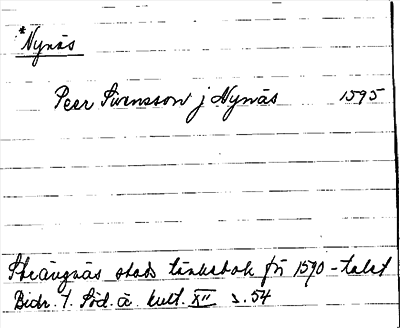 *Nynäs
Peer Swensson j Nynäs 1595
Strängnäs stads tänkebok fr 1590-talet
Bidr. t. Söd. ä. kult. XII s. 54